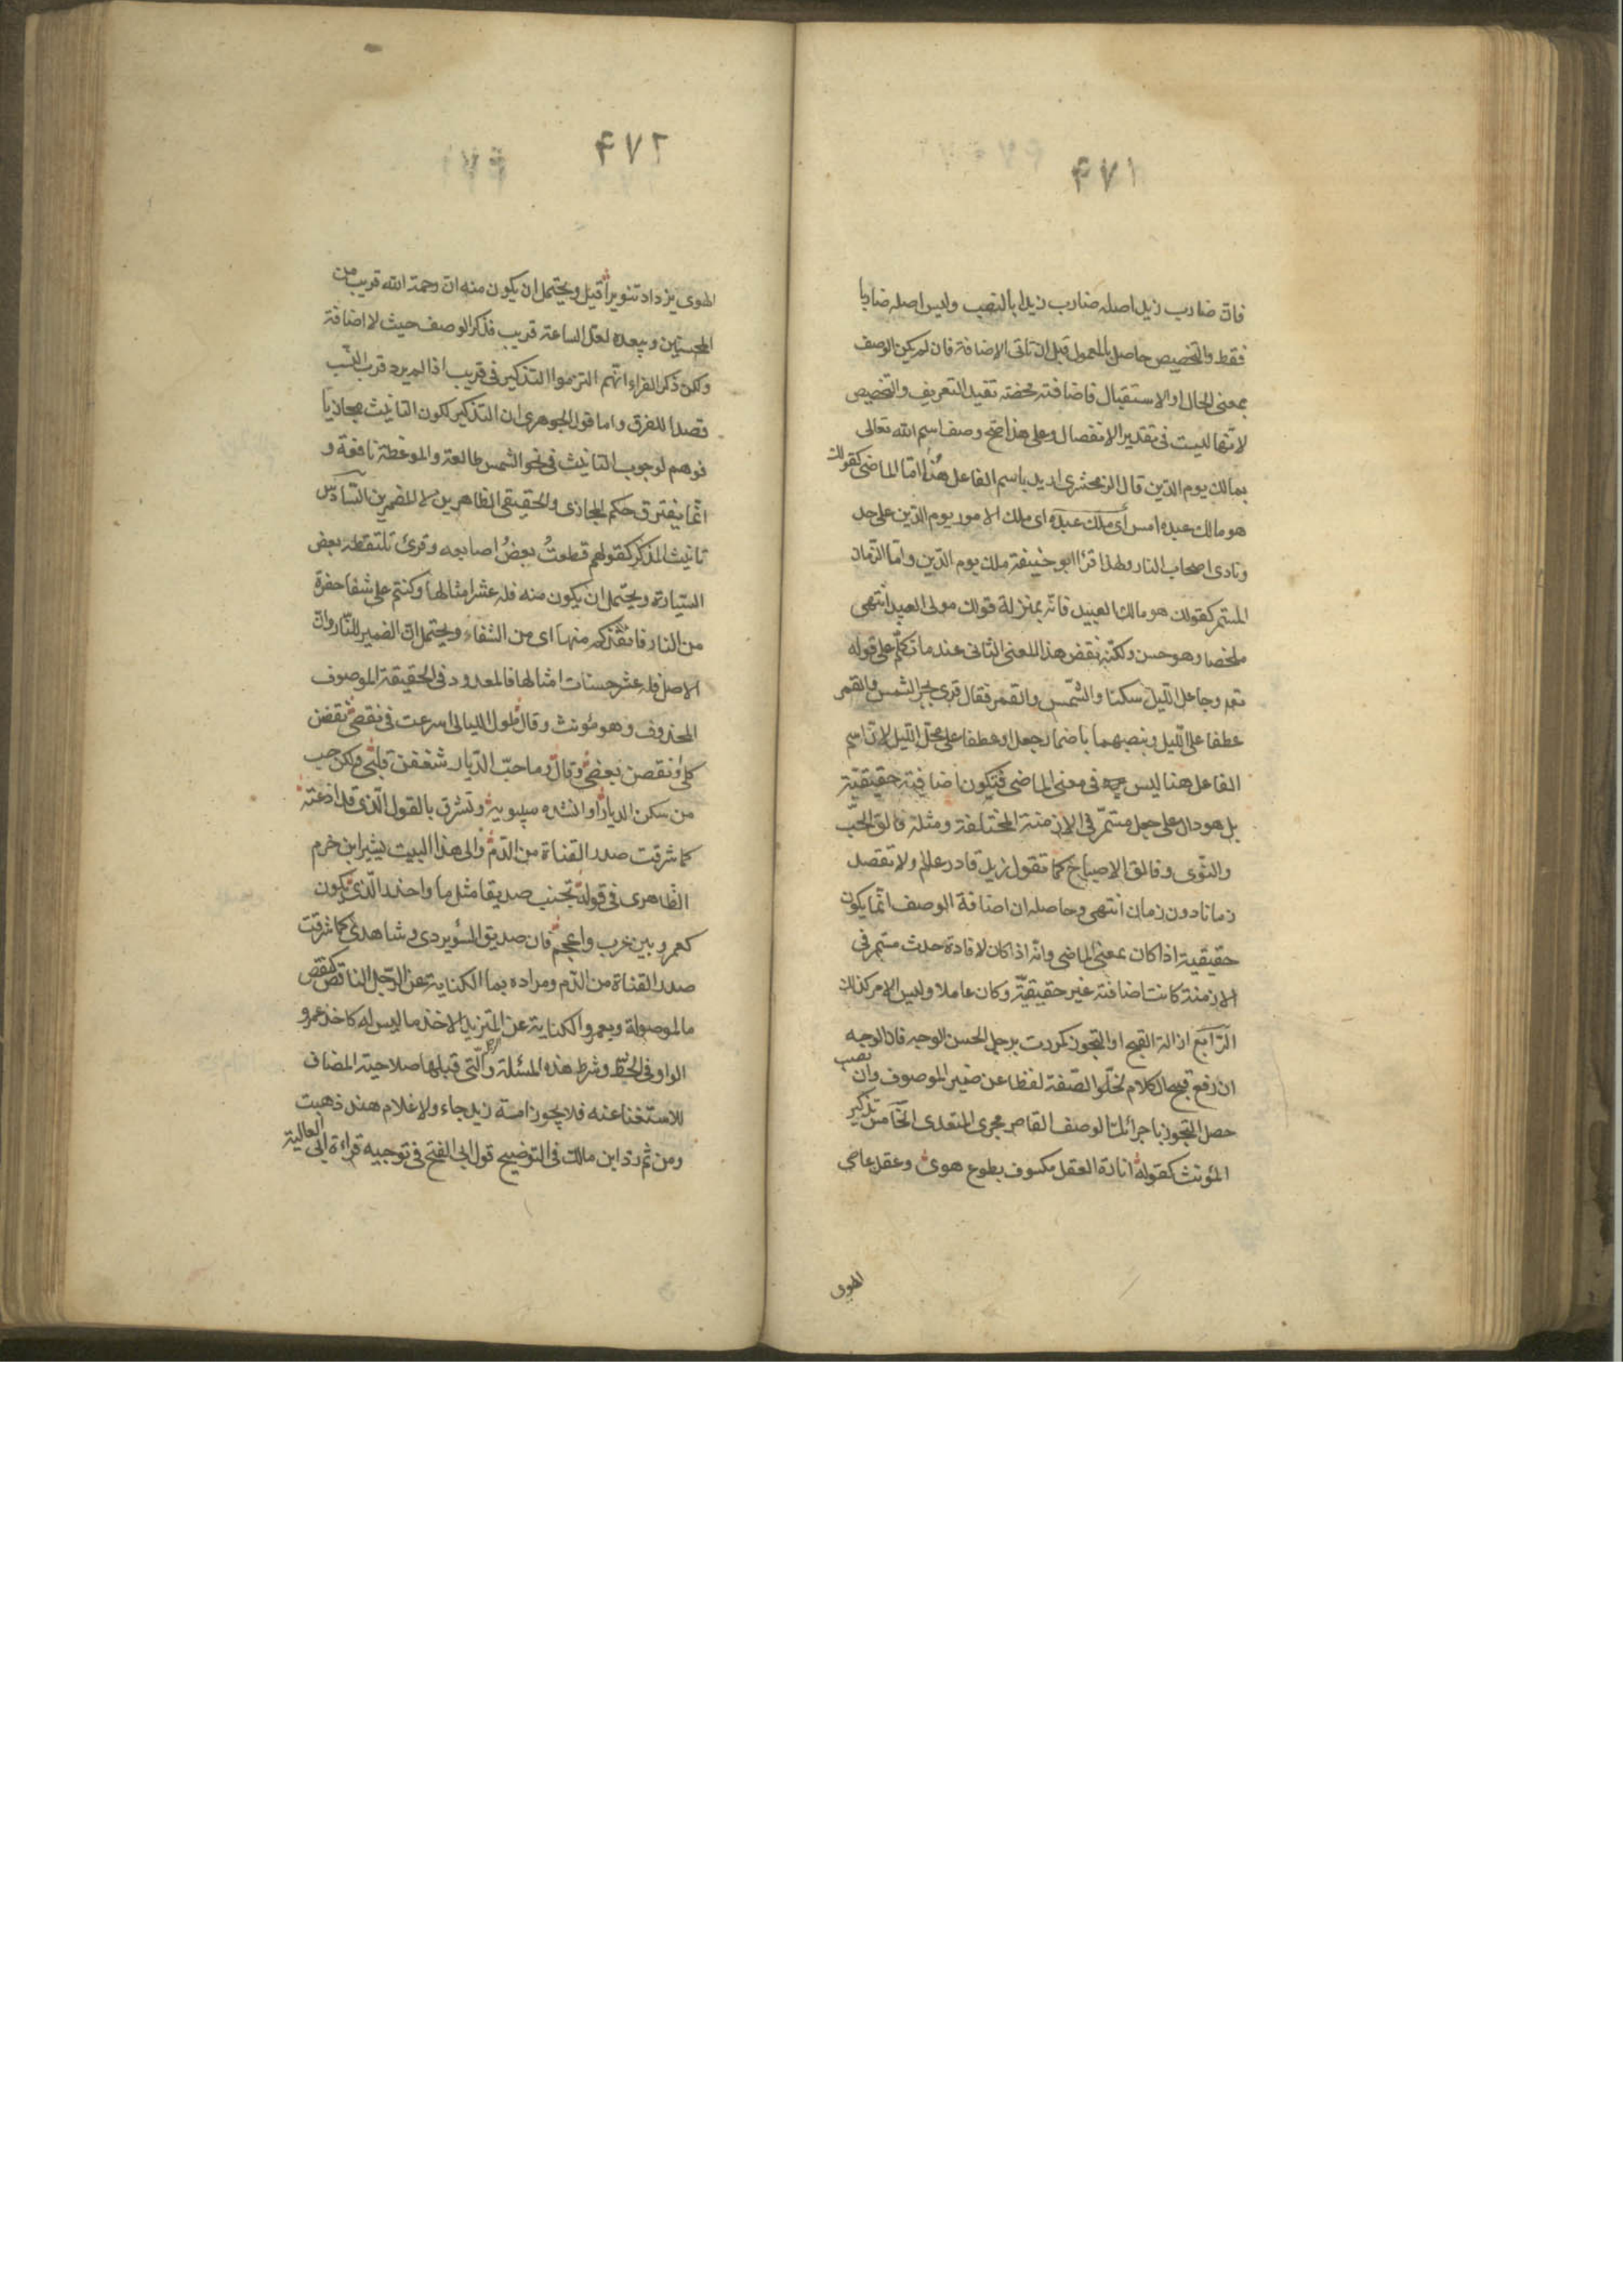 ٤٧١
فان ضارب زيد اصله ضارب زيدا بالنصب وليس اصله ضاربا
فقط والتخصيص حاصل بالمعمول قبل ان تاتى الاضافة فان لم يكن الوصف
بمعنى الحال او الاستقبال فاضافته محضته تفيد التعريف والتخصيص
لانها ليست فى تقدير الانفصال وعلى هذا صح وصف اسم الله تعالى
بمالك يوم الدين قال الزمخشرى اريد باسم الفاعل هنا اما الماضى كقولك
هو مالك عبده امس أى ملك عبده اى ملك الامور يوم الدين على حد
ونادى اصحاب النار ولهذا قرأ ابو حنيفة ملك يوم الدين واما الزمان
المستمر كقولك هو مالك العبيد فانه بمنزلة قولك مولى العبيد انتهى
ملخصا وهو حسن ولكنه نقض هذا المعنى الثانى عندما تكلم على قوله
تعه وجاعل الليل سكنا والشمس والقمر فقال قرى بجر الشمس والقمر
عطفا على الليل وبنصبهما باضمار جعل او عطفا على محل الليل لان اسم
الفاعل هنا ليس فى معنى الماضى فتكون اضافته حقيقية
بل هو دال على جعل مستمر فى الازمنة المختلفة ومثله فالق الحب
والنوى وفالق الاصباح كما تقول زيد قادر عالم ولا تقصد
زمانا دون زمان انتهى وحاصله ان اضافة الوصف انما يكون
حقيقية اذا كان بمعنى الماضى وانه اذا كان لافادة حدث مستمر فى
الازمنة كانت اضافته غير حقيقية وكان عاملا وليس الامر كذلك
الرابع ازالة القبح او التجوز كمررت برجل الحسن الوجه فان الوجه
ان رفع قبح الكلام لخلو الصفة لفظا عن ضمير الموصوف وان نصب
حصل التجوز باجرائك الوصف القاصر مجرى المتعدى الخامس تذكير
المؤنث كقوله انارة العقل مكسوف بطوع هوى وعقل عاصى
الهوى
٤٧٢
الهوى يزداد تنويرا قيل ويحتمل ان يكون منه ان رحمة الله قريب من
المحسنين ويبعده لعل الساعة قريب فذكر الوصف حيث لا اضافة
ولكن ذكر الفراء انهم التزموا التذكير فى قريب اذا لم يرد قرب النسب
قصدا للفرق واما قول الجوهرى ان التذكير لكون التانيث مجازيا
فوهم لوجوب التانيث فى نحو الشمس طالعة والموعظة نافعة و
انما يفترق حكم المجازى والحقيقى الظاهرين لا المضمرين السادس
تانيث المذكر كقولهم قطعت بعض اصابعه وقرئ تلتقطه بعض
السيارة ويحتمل ان يكون منه فله عشر امثالها وكنتم على شفا حفرة
من النار فانقذكم منها اى من الشفاء ويحتمل ان الضمير للنار وان
الاصل فله عشر حسنات امثالها فالمعدود فى الحقيقة الموصوف
المحذوف وهو مؤنث وقال طول الليالى اسرعت فى نقضى نقضن
كلى ونقصن بعضى وقال وما حب الديار شغفن قلبى ولكن حب
من سكن الديارا وانشده سيبويه وتشرق بالقول الذى قد اذعته
كما شرقت صدر القناة من الدم والى هذا البيت يشير ابن خرم
الظاهرى فى قوله تجنب صديقا مثل ما واحذر الذى يكون
كعمرو بين عرب واعجم فان صديق السؤ يردى وشاهدى كما شرقت
صدر القناة من الدم ومراده بما الكناية عن الرجل الناقص كنقص
ما الموصولة وبعمرو الكناية عن المتزيد الاخذ ما ليس له كاخذ عمرو
الواو فى الخط وشرط هذه المسئلة والتى قبلها صلاحية المضاف
للاستغناء عنه فلا يجوز امة زيد جاء ولا غلام هند ذهبت
ومن ثم رد ابن مالك فى التوضيح قول ابى الفتح فى توجيه قراءة ابى العالية